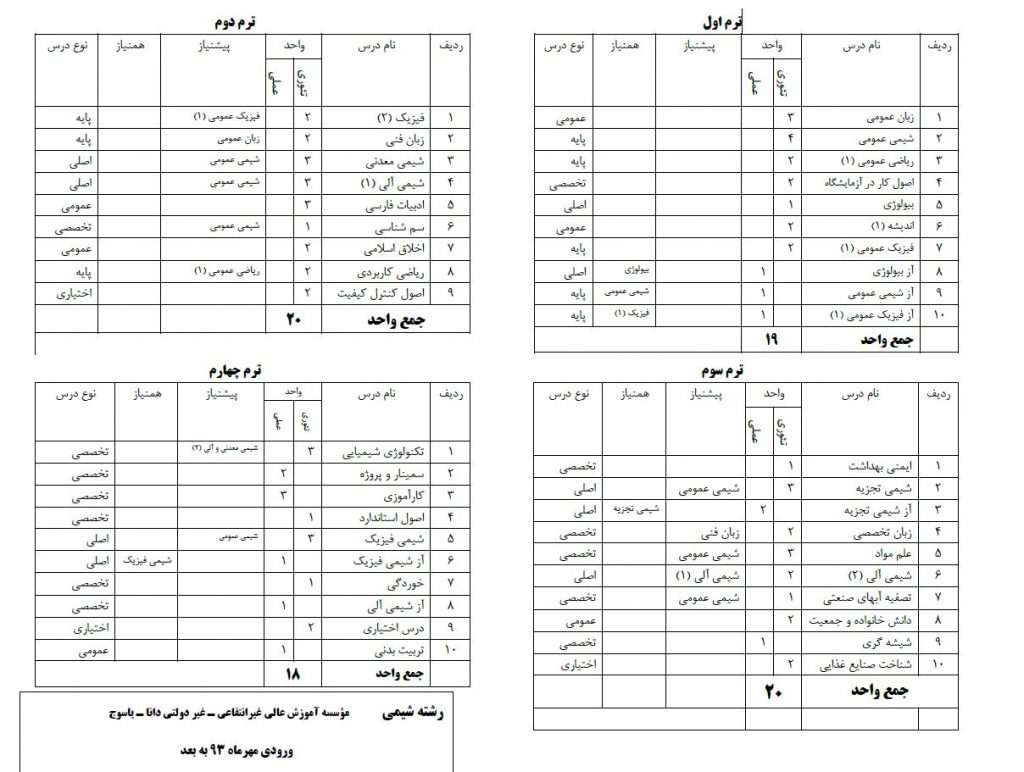 ترم اول
ردیف نام درس واحد پیشنیاز همنیاز نوع درس
تئوری عملی
۱ زبان عمومی ۳ عمومی
۲ شیمی عمومی ۴ پایه
۳ ریاضی عمومی (۱) ۲ پایه
۴ اصول کار در آزمایشگاه ۲ تخصصی
۵ بیولوژی ۱ اصلی
۶ اندیشه (۱) ۲ عمومی
۷ فیزیک عمومی (۱) ۲ پایه
۸ آز بیولوژی ۱ بیولوژی اصلی
۹ آز شیمی عمومی ۱ شیمی عمومی پایه
۱۰ آز فیزیک عمومی (۱) ۱ فیزیک (۱) پایه
جمع واحد ۱۹
ترم دوم
ردیف نام درس واحد پیشنیاز همنیاز نوع درس
تئوری عملی
۱ فیزیک (۲) ۲ فیزیک عمومی (۱) پایه
۲ زبان فنی ۲ زبان عمومی پایه
۳ شیمی معدنی ۳ شیمی عمومی اصلی
۴ شیمی آلی (۱) ۳ شیمی عمومی اصلی
۵ ادبیات فارسی ۳ عمومی
۶ سم شناسی ۱ شیمی عمومی تخصصی
۷ اخلاق اسلامی ۲ عمومی
۸ ریاضی کاربردی ۲ ریاضی عمومی (۱) پایه
۹ اصول کنترل کیفیت ۲ اختیاری
جمع واحد ۲۰
ترم سوم
ردیف نام درس واحد پیشنیاز همنیاز نوع درس
تئوری عملی
۱ ایمنی بهداشت ۱ تخصصی
۲ شیمی تجزیه ۳ شیمی عمومی اصلی
۳ آز شیمی تجزیه ۲ شیمی تجزیه اصلی
۴ زبان تخصصی ۲ زبان فنی تخصصی
۵ علم مواد ۳ شیمی عمومی تخصصی
۶ شیمی آلی (۲) ۲ شیمی آلی (۱) اصلی
۷ تصفیه آبهای صنعتی ۱ شیمی عمومی تخصصی
۸ دانش خانواده و جمعیت ۲ عمومی
۹ شیشه گری ۱ تخصصی
۱۰ شناخت صنایع غذایی ۲ اختیاری
جمع واحد ۲۰
ترم چهارم
ردیف نام درس واحد پیشنیاز همنیاز نوع درس
تئوری عملی
۱ تکنولوژی شیمیایی ۳ شیمی معدنی و آلی (۲) تخصصی
۲ سمینار و پروژه ۲ تخصصی
۳ کارآموزی ۳ تخصصی
۴ اصول استاندارد ۱ تخصصی
۵ شیمی فیزیک ۳ شیمی عمومی اصلی
۶ آز شیمی فیزیک ۱ شیمی فیزیک اصلی
۷ خوردگی ۱ تخصصی
۸ آز شیمی آلی ۱ تخصصی
۹ درس اختیاری ۲ اختیاری
۱۰ تربیت بدنی ۱ عمومی
جمع واحد ۱۸
رشته شیمی مؤسسه آموزش عالی غیرانتفاعی – غیر دولتی دانا – یاسوج
ورودی مهرماه ۹۳ به بعد